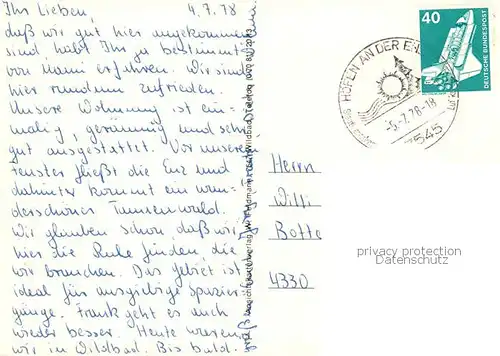 Ihr Lieben, 4.7.78
daß wir gut hier angekommen
sind habt Ihr ja bestimmt
von Mami erfahren. Wir sind
hier rundum zufrieden.
Unsere Wohnung ist ein-
malig, geräumig und sehr
gut ausgestattet. Vor unserem
Fenster fließt die Enz und
dahinter kommt ein wun-
derschöner Tannenwald.
Wir glauben schon daß wir
hier die Ruhe finden, die
wir brauchen. Das Gebiet ist
ideal für ausgiebige Spazier-
gänge. Frank geht es auch
wieder besser. Heute waren
wir in Wildbad. Bis bald.
HÖFEN AN DER ENZ
-5.-7.78-18
7545
40
DEUTSCHE BUNDESPOST
Herrn
Willi
Botte
4330
privacy protection
Datenschutz